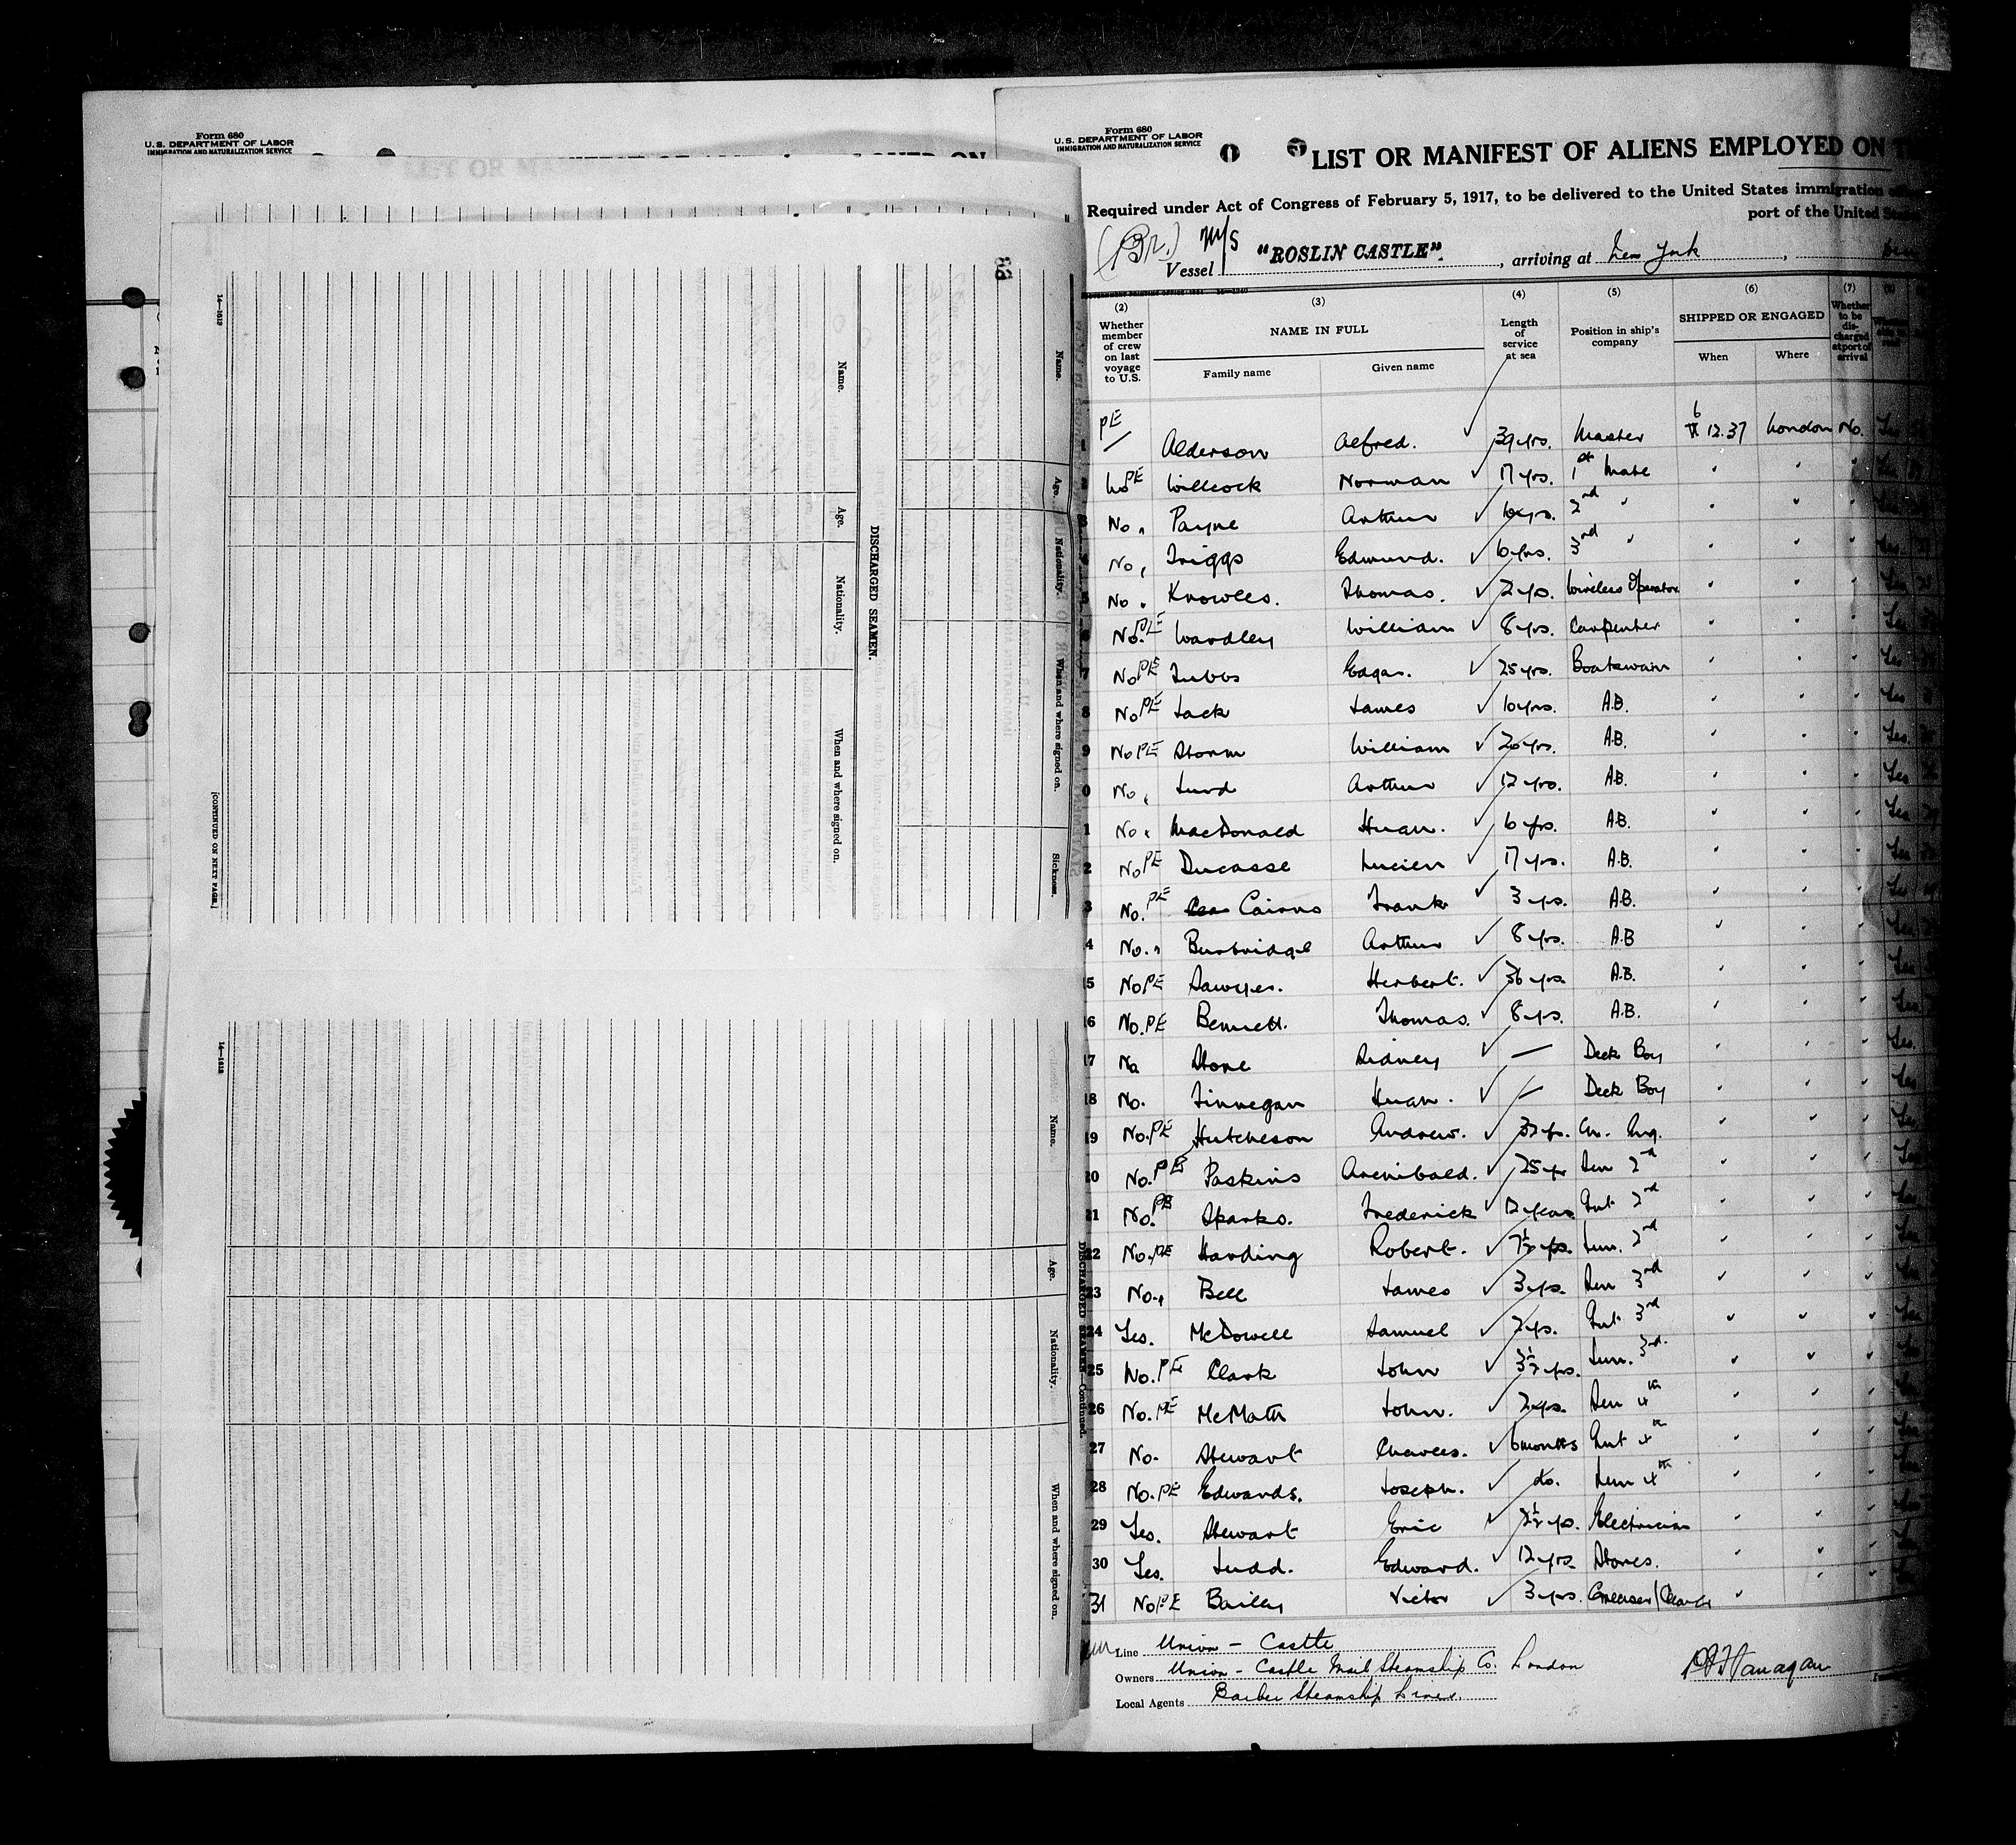 Form 680
U.S. DEPARTMENT OF LABOR
IMMIGRATION AND NATURALIZATION SERVICE
Name.
Age.
Nationality.
When and where signed on.
Sickness.
DISCHARGED SEAMEN.
Name.
Age.
Nationality.
When and where signed on.
[CONTINUED ON NEXT PAGE.]
14—1613
DISCHARGED SEAMEN—Continued.
Name.
Age.
Nationality.
When and where signed on.
14—1613
Form 680
U.S. DEPARTMENT OF LABOR
IMMIGRATION AND NATURALIZATION SERVICE
LIST OR MANIFEST OF ALIENS EMPLOYED ON
Required under Act of Congress of February 5, 1917, to be delivered to the United States immigration
port of the United
(Br.) M/S
Vessel "ROSLIN CASTLE", arriving at New York,
(2) (3) (4) (5) (6) (7) (8)
Whether member of crew on last voyage to U.S. NAME IN FULL Family name Given name Length of service at sea Position in ship's company SHIPPED OR ENGAGED When Where Whether to be discharged at port of arrival
1 PE — Alderson Alfred. ✓ 39 yrs. Master 6.12.37 London No. Yes
2 No PE Willcock Norman ✓ 17 yrs. 1st Mate " " " Yes
3 No " Payne Arthur ✓ 10 yrs. 2nd " " " "
4 No " Triggs Edmund. ✓ 6 yrs. 3rd " " " " Yes
5 No " Knowles. Thomas. ✓ 2 yrs. Wireless Operator " " " Yes
6 No. PE Wardley William ✓ 8 yrs. Carpenter " " " Yes
7 No PE Tubbs Edgar. ✓ 25 yrs. Boatswain " " " Yes
8 No PE Jack James ✓ 10 yrs. A.B. " " " Yes
9 No PE Storm William ✓ 20 yrs. A.B. " " " Yes.
0 No " Lund Arthur ✓ 12 yrs. A.B. " " " Yes
1 No " MacDonald Hugh. ✓ 6 yrs. A.B. " " " Yes
2 No PE Ducasse Lucien ✓ 17 yrs. A.B. " " " Yes
3 No. PE Cairns Frank ✓ 3 yrs. A.B. " " " Yes
4 No. " Burbridge Arthur ✓ 8 yrs. A.B " " " Yes
5 No PE Sawyer. Herbert. ✓ 36 yrs. A.B. " " " Yes
16 No. PE Bennett. Thomas. ✓ 8 yrs. A.B. " " " Yes
17 No Stone Sidney ✓ — Deck Boy " " " Yes.
18 No. Finnegan Hugh. ✓ — Deck Boy " " " Yes
19 No. PE Hutcheson Andrew. ✓ 32 yrs. Ch. Eng. " " " Yes
20 No. PE Paskins Archibald. ✓ 25 yr Sen 2nd " " " Yes
21 No. PE Sparks. Frederick ✓ 12 years Int 2nd " " "
22 No. PE Harding Robert. ✓ 7½ yrs. Jun. 2nd " " "
23 No. " Bell James ✓ 3 yrs. Sen 3rd " " "
24 Yes. McDowell Samuel ✓ 2 yrs. Int 3rd " " "
25 No. PE Clark John ✓ 3½ yrs. Jun. 3rd. " " "
26 No. PE McMath John. ✓ 2 yrs. Sen 4th " " "
27 No. Stewart Charles. ✓ 6 months Int 4th " " "
28 No. PE Edwards. Joseph. ✓ do. Jun 4th " " "
29 Yes. Stewart Eric ✓ 2½ yrs. Electrician " " "
30 Yes. Judd. Edward. ✓ 12 yrs. Stores. " " "
31 No PE Bailey Victor ✓ 3 yrs. Greaser/Cleaner " " "
Line Union - Castle
Owners Union - Castle Mail Steamship Co. London
Local Agents Barber Steamship Lines.
Flanagan